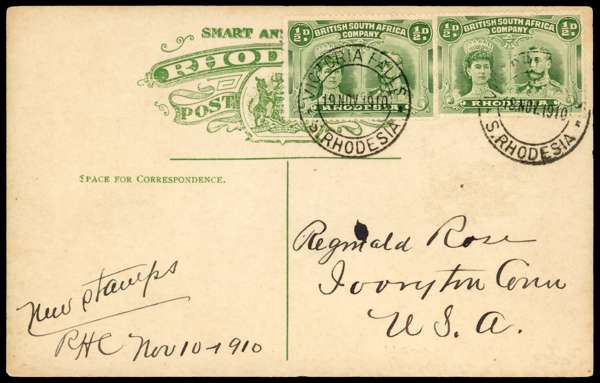 SMART AN
RHOD
POST
½D. BRITISH SOUTH AFRICA COMPANY ½D.
RHODESIA
½D. BRITISH SOUTH AFRICA COMPANY ½D.
RHODESIA
VICTORIA FALLS
19 NOV. 1910
S. RHODESIA
NOV. 1910
S. RHODESIA
SPACE FOR CORRESPONDENCE.
Reginald Rose
Ivoryton Conn
U.S.A.
New stamps
RHC Nov 10-1910